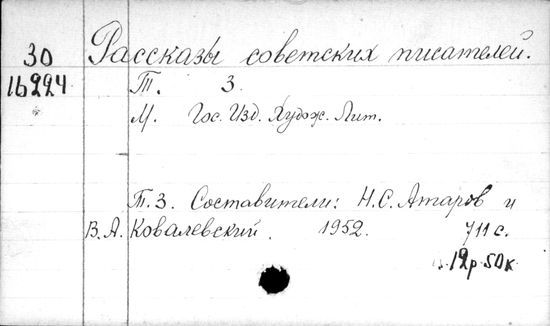 30 Рассказы советских писателей.
16224 Т. 3.
М. Гос. Изд. Худож. Лит.
Т. 3. Составители: Н. С. Атаров и
В. А. Ковалевский. 1952. 711 с.
12р 50к